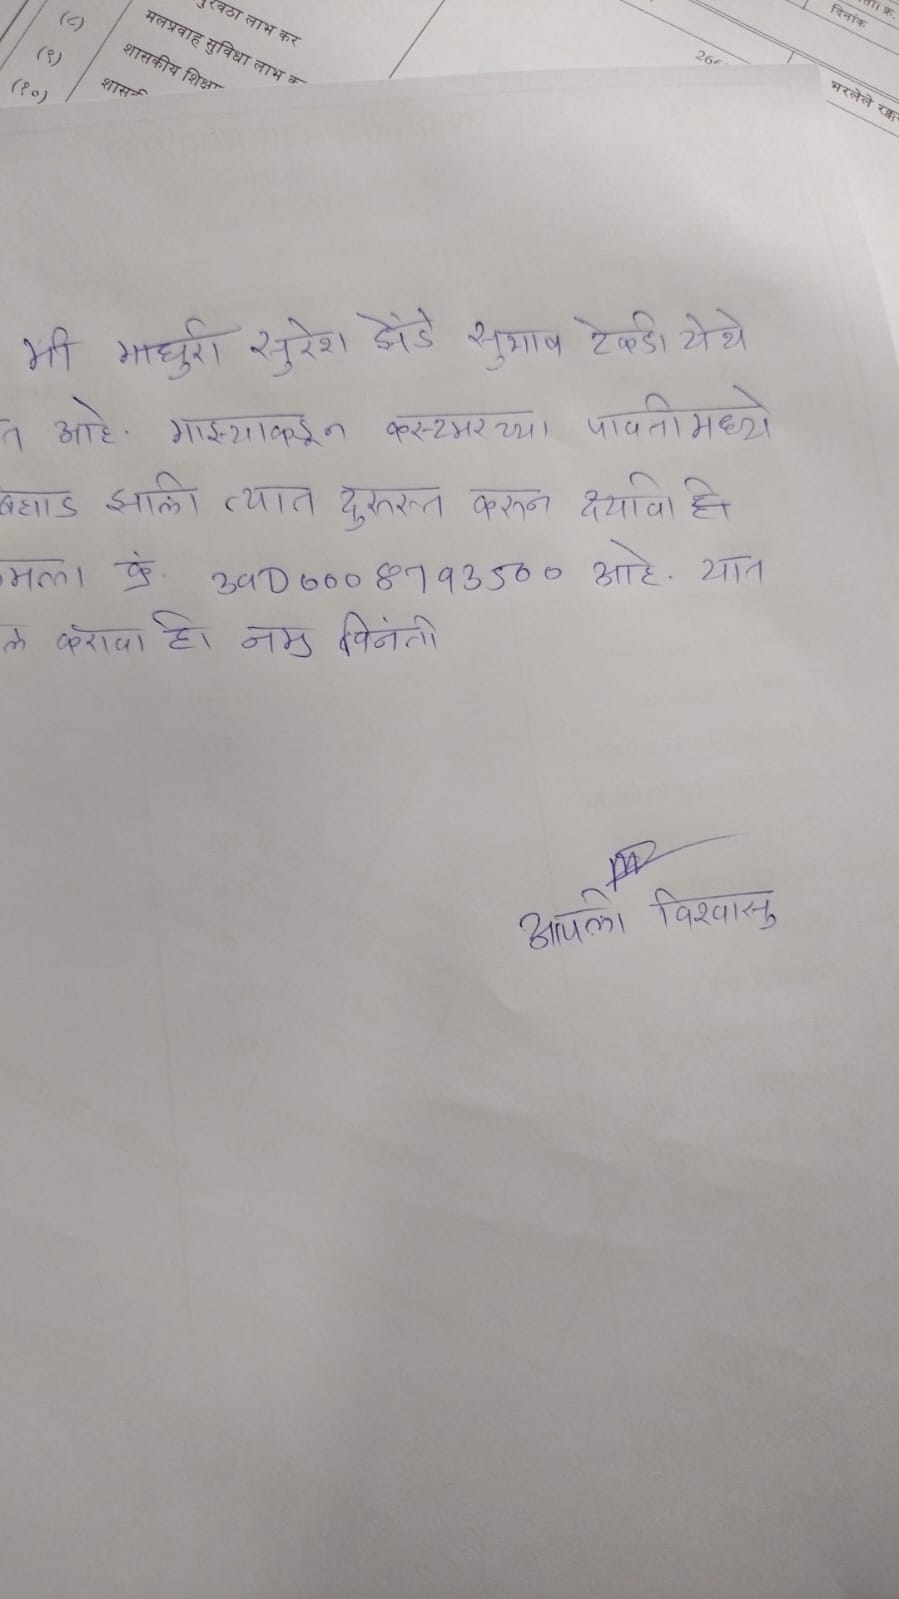 (८)
पुरवठा लाभ कर
(९)
मलप्रवाह सुविधा लाभ क
(१०)
शासकीय शिक्षण
दिनांक
भरलेले रक्क
मी माधुरी सुरेश झेंडे सुभाष टेकडी येथे
त आहे. माझ्याकडून कस्टमरच्या पावतीमध्ये
बिघाड झाली त्यात दुरुस्त करून द्यावि हि
क्र. आहे. यात
करावा हि नम्र विनंती
आपली विश्वासु